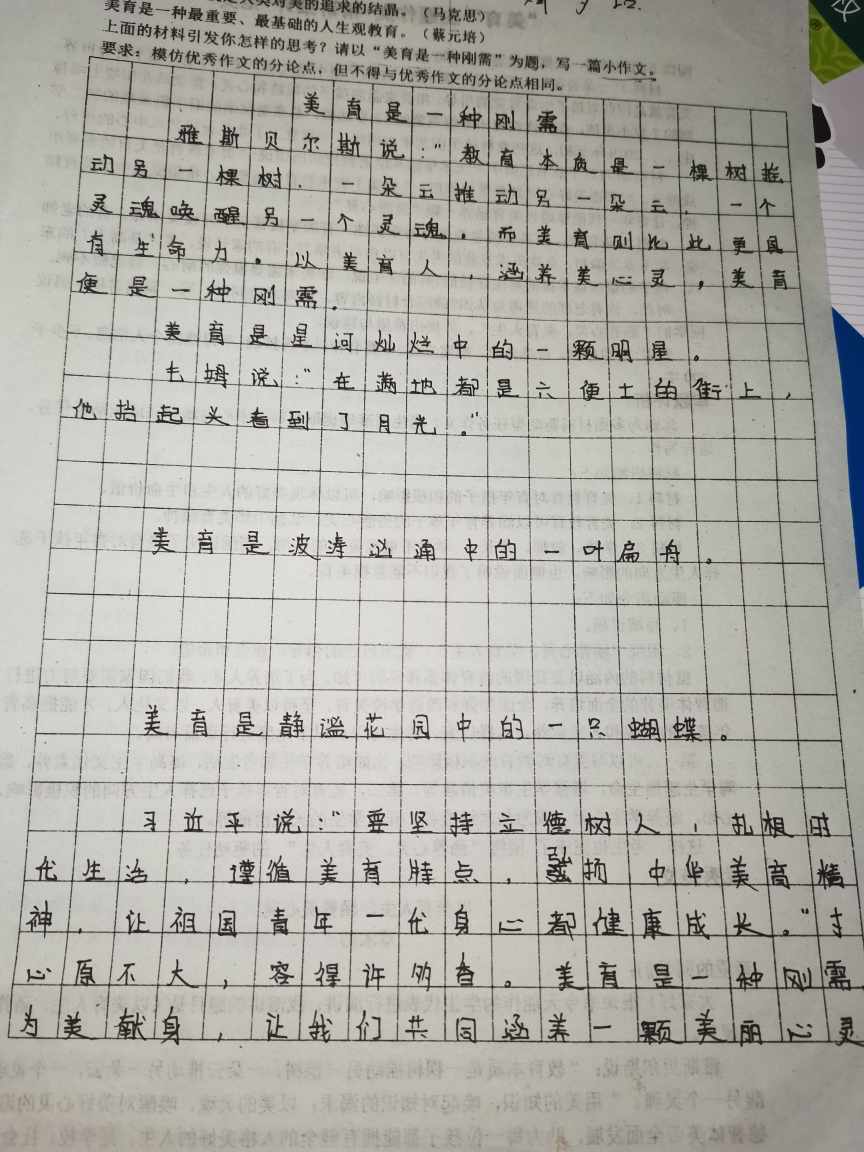 人类对美的追求的结晶。(马克思)
美育是一种最重要、最基础的人生观教育。(蔡元培)
上面的材料引发你怎样的思考?请以“美育是一种刚需”为题,写一篇小作文。
要求:模仿优秀作文的分论点,但不得与优秀作文的分论点相同。
美育是一种刚需
雅斯贝尔斯说:“教育本质是一棵树摇
动另一棵树,一朵云推动另一朵云,一个
灵魂唤醒另一个灵魂。而美育则比此更具
有生命力。以美育人,涵养美心灵,美育
便是一种刚需。
美育是星河灿烂中的一颗明星。
毛姆说:“在满地都是六便士的街上,
他抬起头看到了月光。”
美育是波涛汹涌中的一叶扁舟。
美育是静谧花园中的一只蝴蝶。
习近平说:“要坚持立德树人,扎根时
代生活,遵循美育特点,弘扬中华美育精
神,让祖国青年一代身心都健康成长。”寸
心原不大,容得许多香。美育是一种刚需,
为美献身,让我们共同涵养一颗美丽心灵